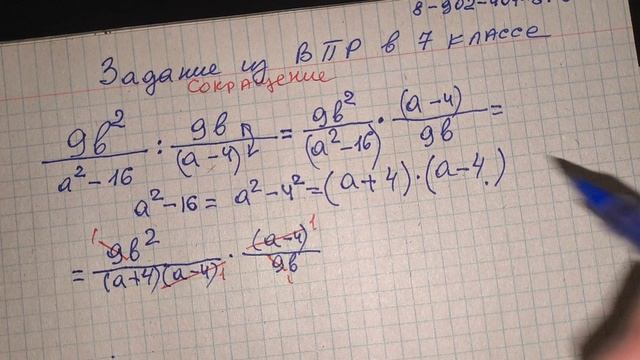 Задание из ВПР в 7 классе
сокращение
9b²/(a² – 16) : 9b/(a – 4) = 9b²/(a² – 16) · (a – 4)/9b =
a² – 16 = a² – 4² = (a + 4) · (a – 4)
= 9b²/(a+4)(a–4) · (a–4)/9b
1 1 1 1